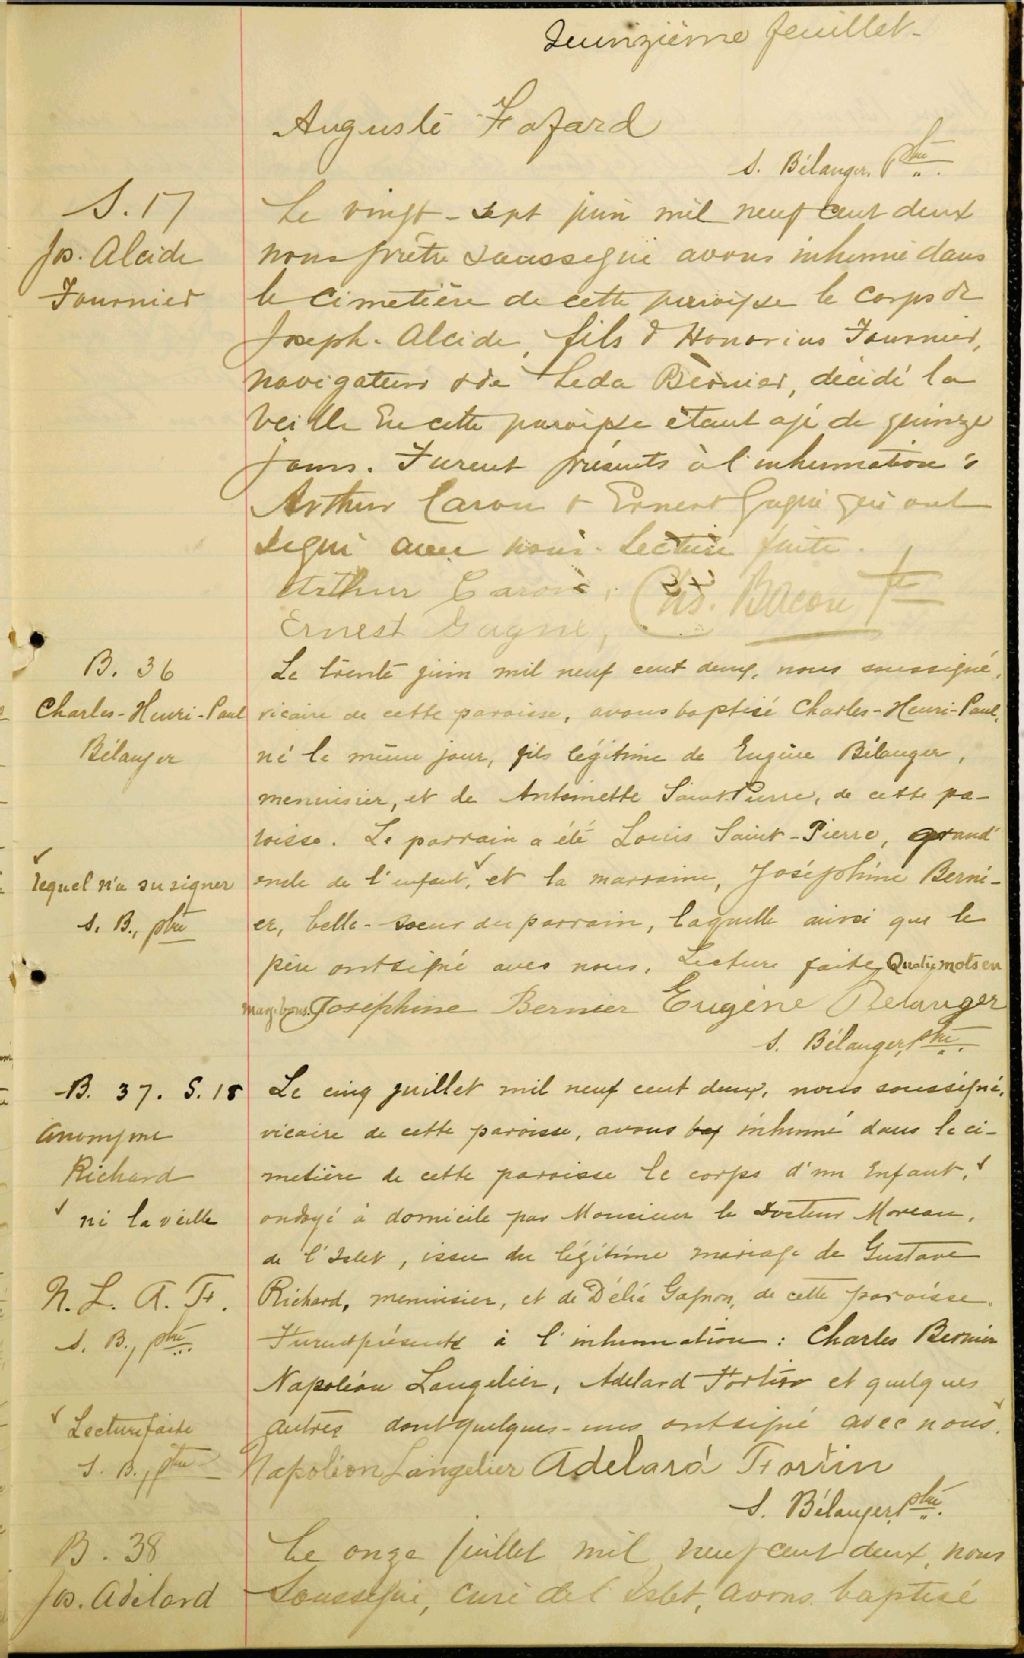 feuillet.
Auguste Fafard
S. Bélanger, ptre
S. 17
Jos. Alcide
Fournier
Le vingt-sept juin mil neuf cent deux
nous prêtre soussigné avons inhumé dans
le cimetière de cette paroisse le corps de
Joseph-Alcide, fils d'Honorius Fournier,
navigateur & de Leda Bernier, décédé la
veille en cette paroisse étant agé de quinze
jours. Furent présents à l'inhumation :
Arthur Caron & Ernest Gagné qui ont
signé avec nous. Lecture faite.
Arthur Caron, Chs. Bacon Ptre
Ernest Gagné,
B. 36
Charles-Henri-Paul
Bélanger
Le trente juin mil neuf cent deux, nous soussigné,
vicaire de cette paroisse, avons baptisé Charles-Henri-Paul,
né le même jour, fils légitime de Eugène Bélanger,
menuisier, et de Antoinette Saint Pierre, de cette pa-
roisse. Le parrain a été Louis Saint-Pierre, grand'
oncle de l'enfant, ✓ et la marraine, Joséphine Berni-
er, belle-soeur du parrain, laquelle ainsi que le
père ont signé avec nous. Lecture faite. Quatre mots en
marge bons. Joséphine Bernier Eugène Belanger
S. Bélanger, ptre.
✓
lequel n'a su signer
S. B., ptre
B. 37. S. 18
Anonyme
Richard
Le cinq juillet mil neuf cent deux, nous soussigné,
vicaire de cette paroisse, avons bap inhumé dans le ci-
metière de cette paroisse le corps d'un Enfant, ✓
ondoyé à domicile par Monsieur le Docteur Moreau,
de l'Islet, issu du légitime mariage de Gustave
Richard, menuisier, et de Délié Gagnon, de cette paroisse.
Furent présents à l'inhumation : Charles Bernier
Napoléon Langelier, Adelard Fortin et quelques
autres dont quelques-uns ont signé avec nous. ✓
Napoléon Langelier Adelard Fortin
S. Bélanger, ptre.
✓ né la veille
N. L. A. F.
S. B., ptre
✓ Lecture faite
S. B., ptre
B. 38
Jos. Adélard
Le onze juillet mil neuf cent deux, nous
soussigné, curé de l'Islet, avons baptisé